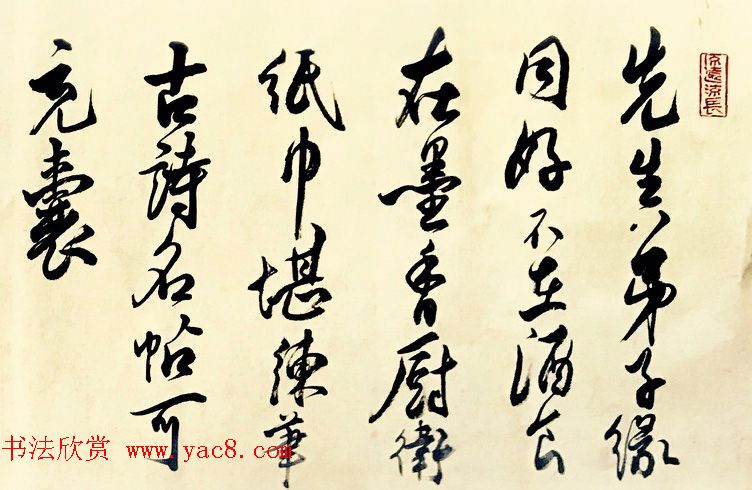 源遠流長
先生弟子緣
同好不在酒食
在墨香厨衛
紙巾堪練筆
古詩名帖可
充囊
书法欣赏 www.yac8.com